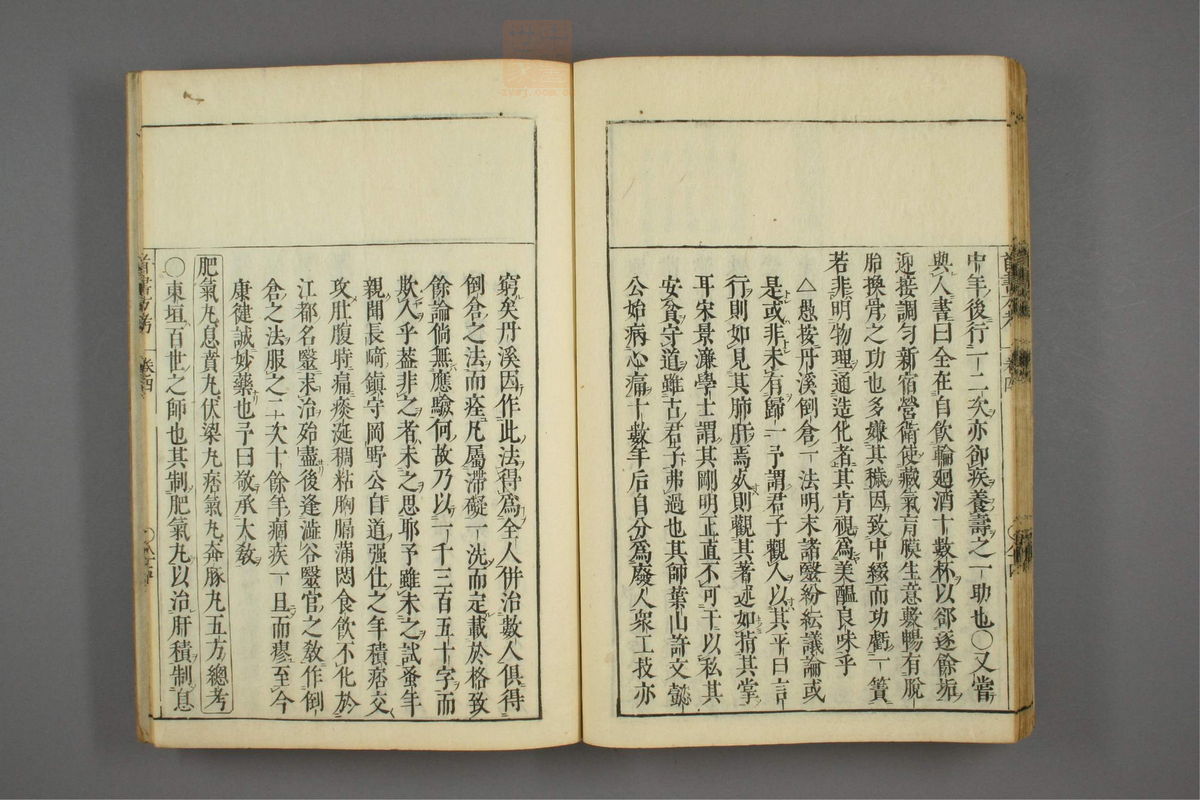 中年後行一二次亦卻疾養壽之一助也〇又嘗
與人書曰全在自飲輪廻酒十數杯以卻逐餘垢
迎接調勻新宿營衛使藏氣肓膜生意敷暢有脫
胎換骨之功也多嫌其穢因致中綴而功虧一簣
若非明物理通造化者其肯視爲美醞良味乎
△愚按丹溪倒倉一法明末諸醫紛紜議論或
是或非未有歸一予謂君子觀人以其平日言
行則如見其肺肝焉故則觀其著述如指其掌
耳宋景濂學士謂其剛明正直不可干以私其
安貧守道雖古君子弗過也其師葉山許文懿
公始病心痛十數年后自分爲廢人衆工技亦
窮矣丹溪因作此法得爲全人併治數人俱得
倒倉之法而痊凡屬滯礙一洗而定載於格致
餘論倘無應驗何故乃以一千三百五十字而
欺人乎葢非之者未之思耶予雖未之試蚤年
親聞長﨑鎭守岡野公自道强仕之年積痞交
攻肚腹時痛痰涎稠粘胸膈滿悶食飲不化於
江都名醫求治殆盡後逢澁谷醫官之教作倒
倉之法服之一次十餘年痼疾一旦而瘳至今
康健誠妙藥也予曰敬承大教
肥氣丸息賁丸伏梁丸痞氣丸奔豚丸五方總考
〇東垣百世之師也其制肥氣丸以治肝積制息
首書方考
卷四